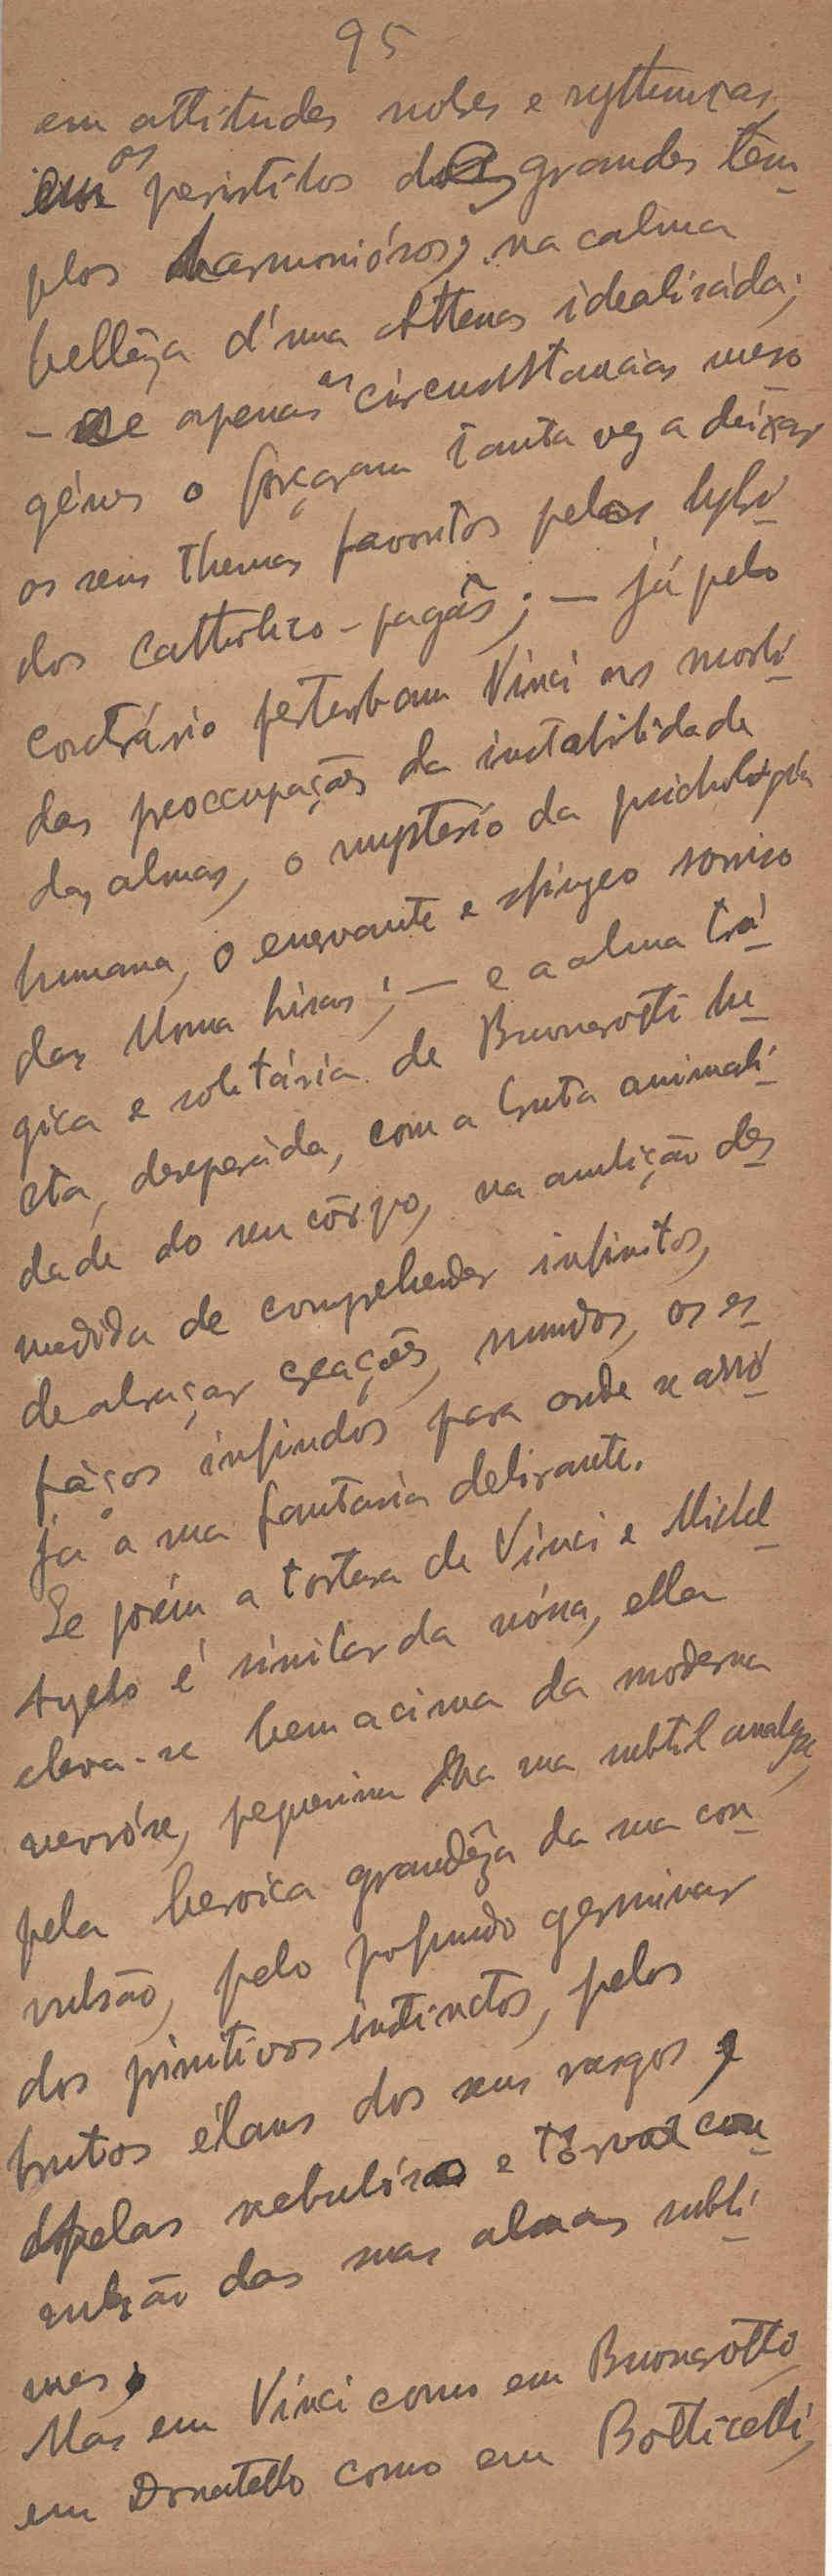 95
em attitudes nobes e rythmicas
os
em peristilos dos grandes tem
plos harmoniósos; na calma
bellêza d'uma Athenas idealisáda;
- se apenas as circumstancias meso
génes o forçaram tanta vez a deixar
os seus themas favoritos pelos hybri
dos catholico-pagãs; — já pelo
contrário perturbam Vinci as morbi
das preoccupações da instabilidade
das almas, o mysterio da psichologia
humana, o enervante e sfingeo soriso
das Mona Lisas; — e a alma trá
gica e solitária de Buonarotti lu
cta, desesperáda, com a bruta animali
dade do seu côrpo, na ambição des
medida de comprehender infinitos,
de abraçar creações, mundos, os es
páços infindos para onde se arro
ja a sua fantasia delirante.
Se porém a tortura de Vinci e Michel
Angelo é similar da nóssa, ella
eleva-se bem acima da moderna
nevróse, pequenina na sua subtil analyse,
pela heroica grandêza da sua con
vulsão, pelo profundo germinar
dos primitivos instinctos, pelos
brutos élans dos seus rasgos e
pelas nebulósa e torva con
vulsão das suas almas subli
mes.
Mas em Vinci como em Buonarotto,
em Donatello como em Botticelli,